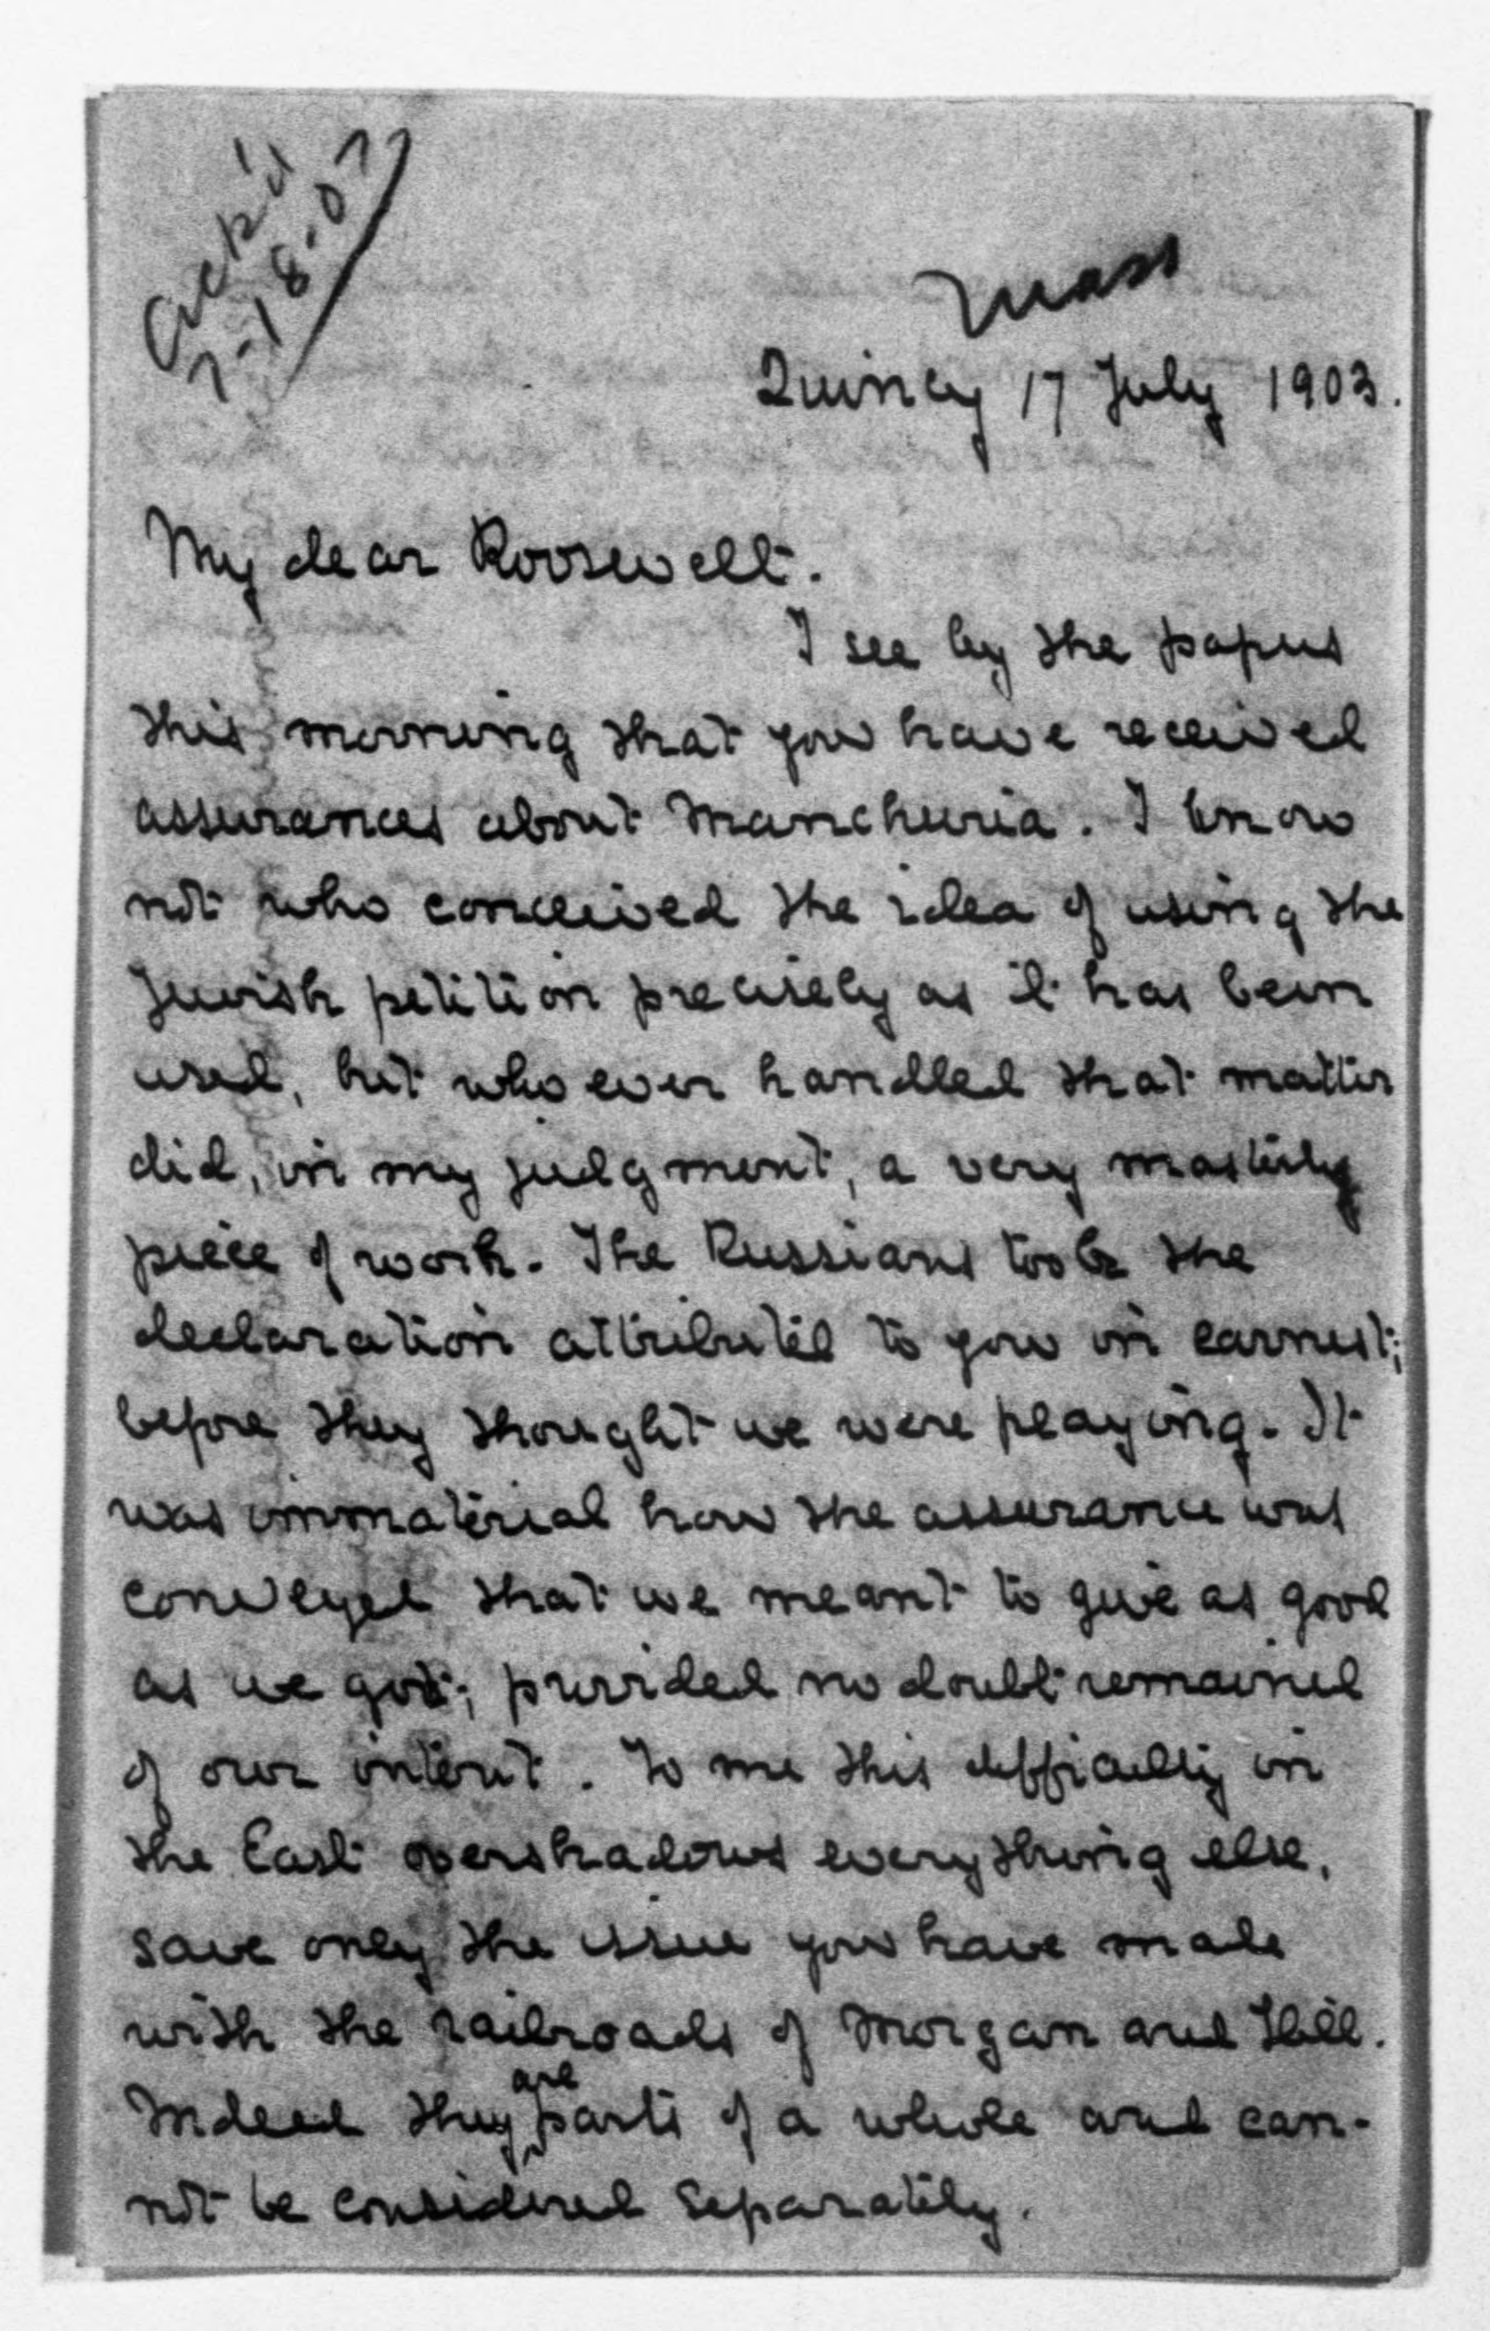 Ack'd
7-18-03
Mass
Quincy 17 July 1903.
My dear Roosevelt.
I see by the papers
this morning that you have received
assurances about Manchuria. I know
not who conceived the idea of using the
Jewish petition precisely as it has been
used, but who ever handled that matter
did, in my judgment, a very masterly
piece of work. The Russians took the
declaration attributed to you in earnest;
before they thought we were playing. It
was immaterial how the assurance was
conveyed that we meant to give as good
as we got; provided no doubt remained
of our intent. To me this difficulty in
the East overshadows everything else,
save only the issue you have made
with the railroads of Morgan and Hill.
Indeed they are parts of a whole and can-
not be considered separately.